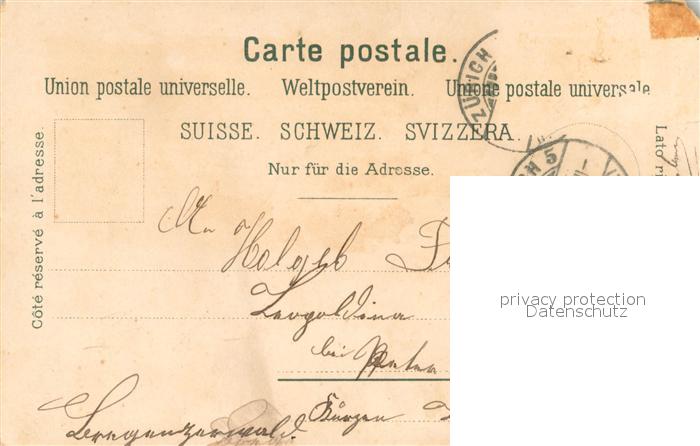 Carte postale.
Union postale universelle. Weltpostverein. Unione postale universale
SUISSE. SCHWEIZ. SVIZZERA.
Nur für die Adresse.
Côté réservé à l'adresse.
Lato ri
ZÜRICH
CH 5
An
Leopoldina
bei Peter
Bregenzerwald.
privacy protection
Datenschutz